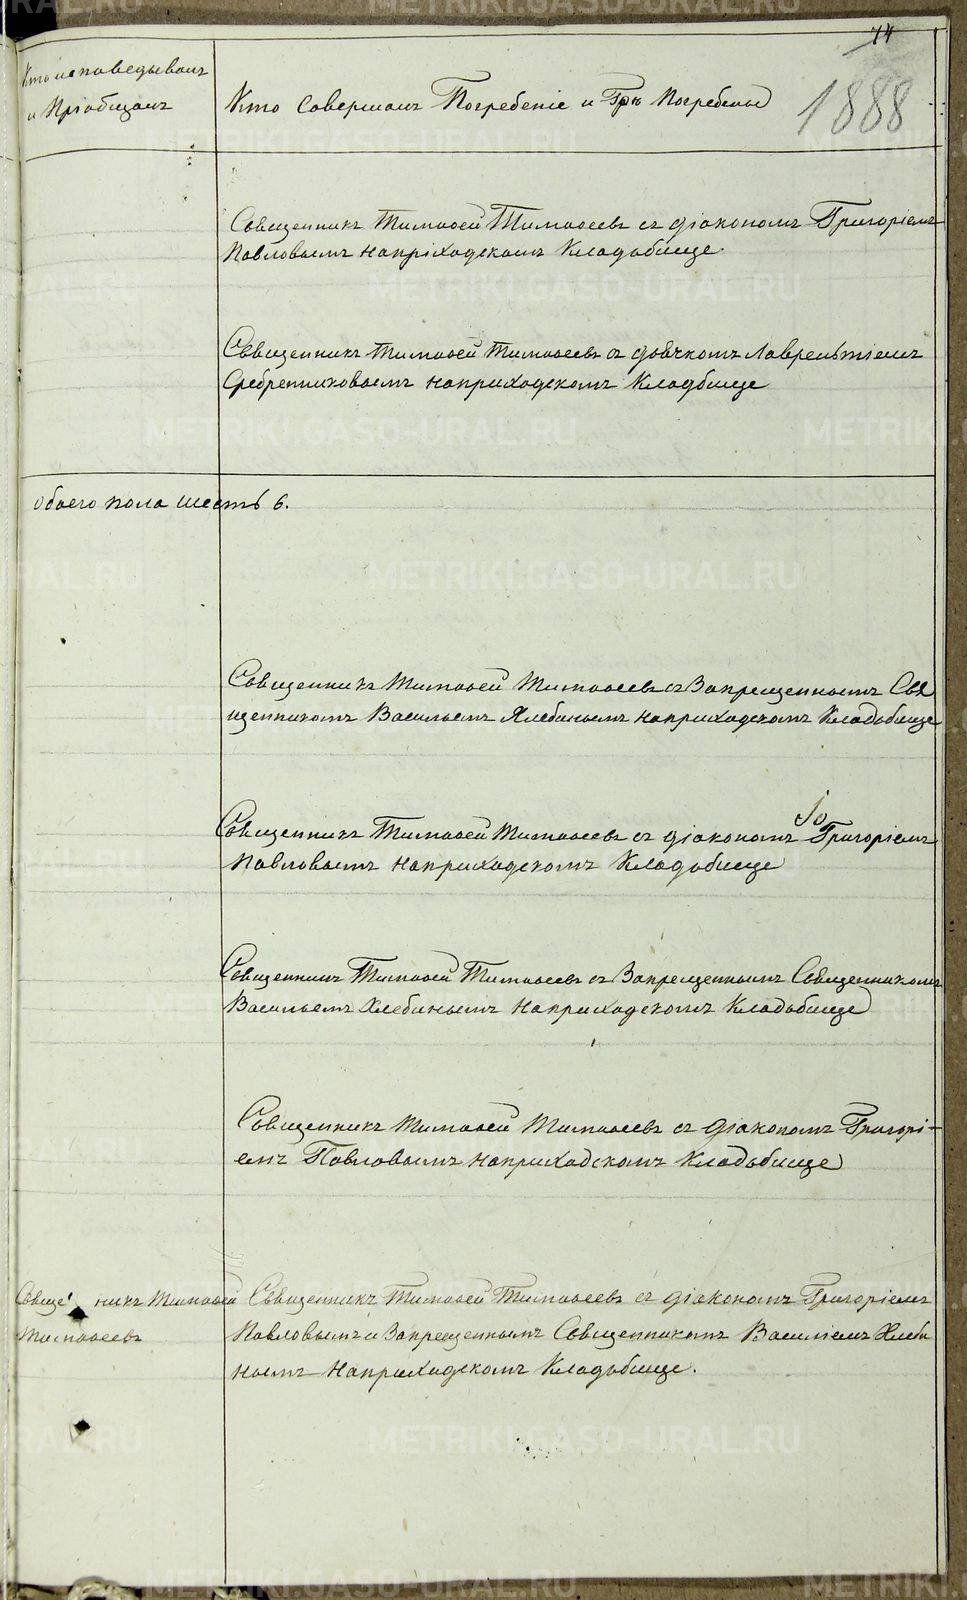 74
1888
Кто исповедывалъ
и Пріобщалъ
Кто Совершалъ Погребеніе и Гдѣ Погребены
Священникъ Тимофей Тимофеевъ съ діакономъ Григоріемъ
Павловымъ наприходскомъ Кладбище.
Священникъ Тимофей Тимофеевъ съ дьячкомъ Лаврентіемъ
Сребренниковымъ наприходскомъ Кладбище
обоего пола шесть 6.
Священникъ Тимофей Тимофеевъ съ Запрещеннымъ Свя
щенникомъ Васильемъ Хлебинымъ наприходскомъ Кладбище
Священникъ Тимофей Тимофеевъ съ діакономъ Григоріемъ
Павловымъ наприходскомъ Кладбище
Священникъ Тимофей Тимофеевъ съ Запрещеннымъ Священникомъ
Васильемъ Хлебинымъ наприходскомъ Кладбище
Священникъ Тимофей Тимофеевъ съ діакономъ Григорі-
емъ Павловымъ наприходскомъ Кладбище
Священникъ Тимофей
Тимофеевъ
Священникъ Тимофей Тимофеевъ съ діакономъ Григоріемъ
Павловымъ и Запрещеннымъ Священникомъ Василіемъ Хлеби
нымъ наприходскомъ Кладбище.
METRIKI.GASO-URAL.RU